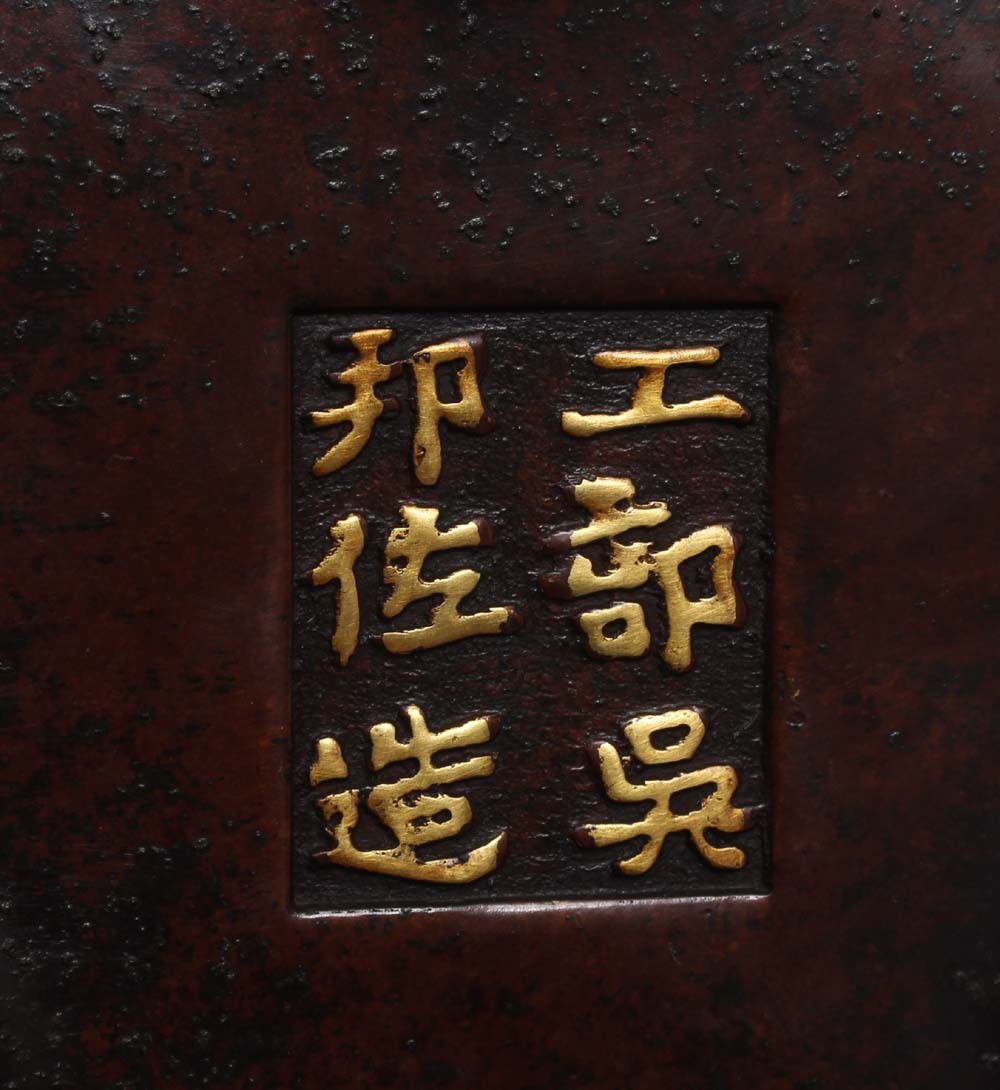 工部吳
邦佐造